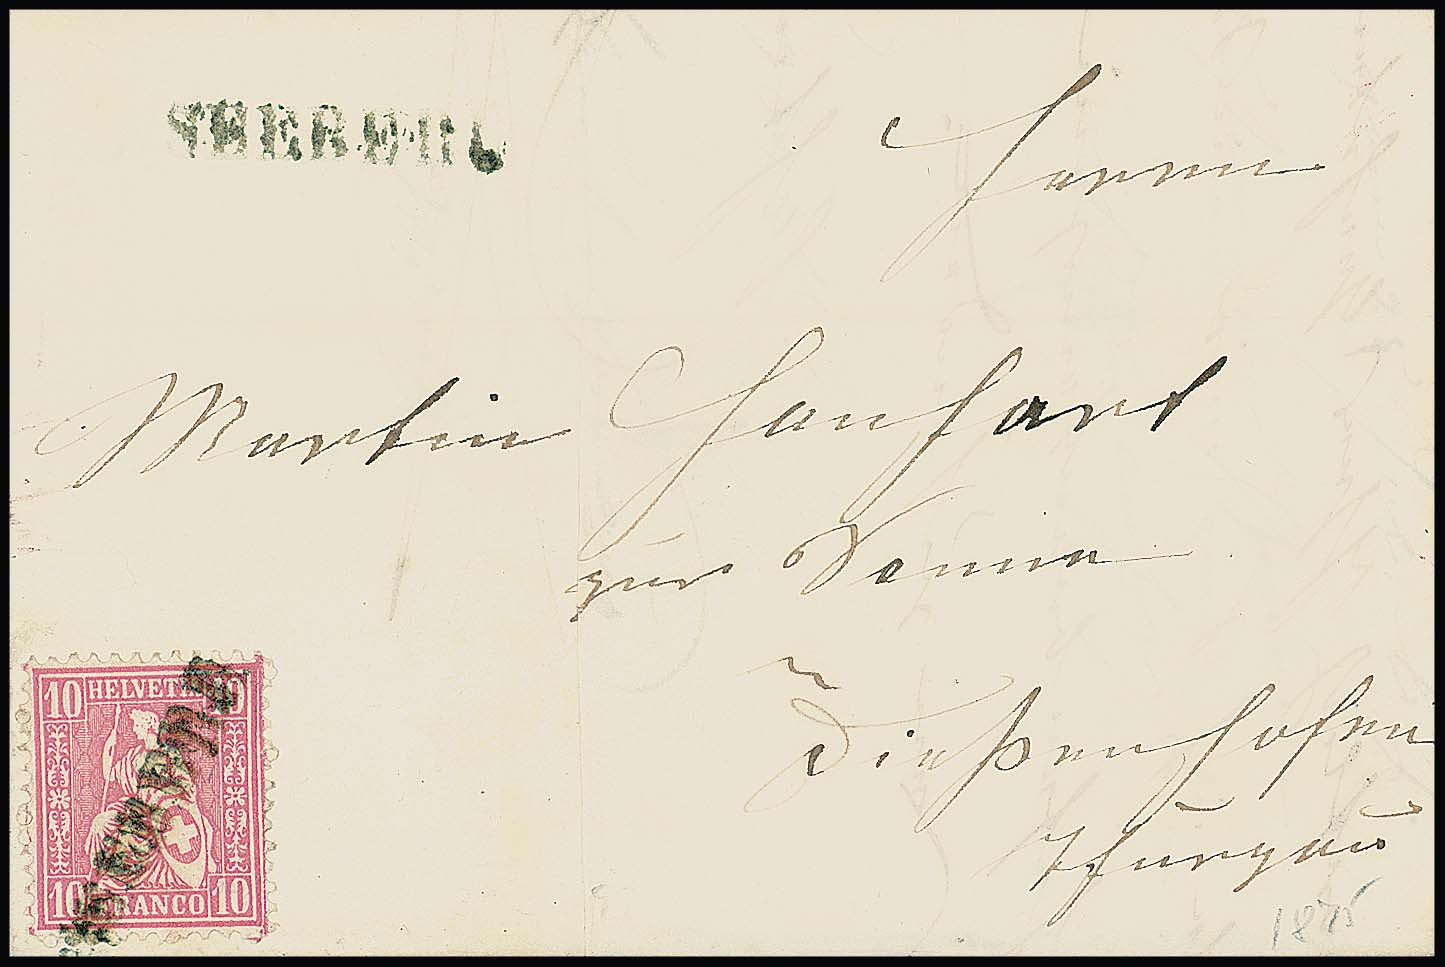 Herrn
Martin Hanhart
zur Sonne
Dießenhofen
Thurgau
1875
10 HELVETIA 10
10 FRANCO 10